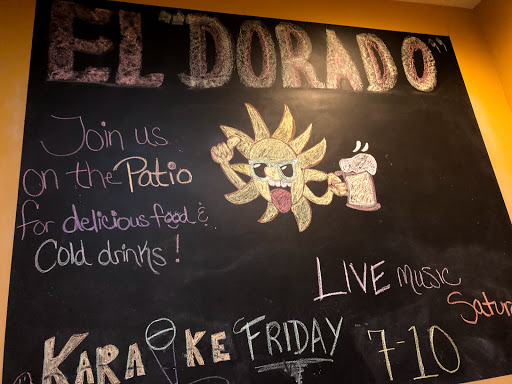 EL "DORADO"
Join us
on the Patio
for delicious food &
Cold drinks!
LIVE music
KARAOKE FRIDAY 7-10